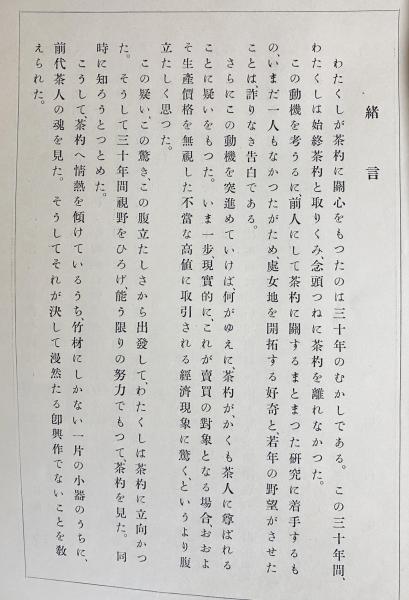 緒言
わたくしが茶杓に關心をもつたのは三十年のむかしである。この三十年間、
わたくしは始終茶杓と取りくみ、念頭つねに茶杓を離れなかつた。
この動機を考うるに、前人にして茶杓に關するまとまつた硏究に着手するも
の、いまだ一人もなかつたがため、處女地を開拓する好奇と、若年の野望がさせた
ことは、詐りなき告白である。
さらにこの動機を突進めていけば、何がゆえに、茶杓が、かくも茶人に尊ばれる
ことに疑いをもつた。いま一步、現實的に、これが賣買の對象となる場合、おおよ
そ生產價格を無視した不當な高値に取引される經濟現象に驚く、というより腹
立たしく思つた。
この疑い、この驚き、この腹立たしさから出發して、わたくしは茶杓に立向かつ
た。そうして三十年間視野をひろげ、能う限りの努力でもつて茶杓を見た。同
時に知ろうとつとめた。
こうして、茶杓へ情熱を傾けているうち、竹材にしかない一片の小器のうちに、
前代茶人の魂を見た。そうしてそれが決して漫然たる卽興作でないことを敎
えられた。